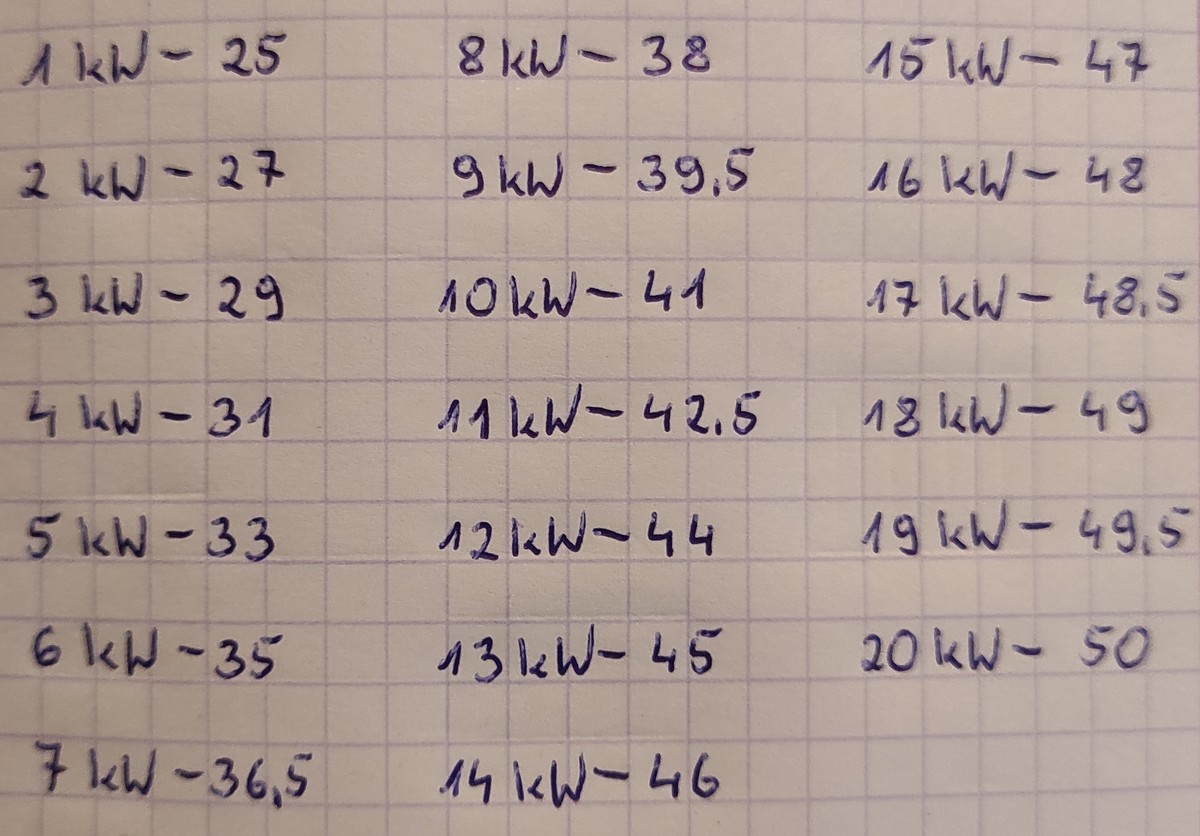 1 kW - 25
2 kW - 27
3 kW - 29
4 kW - 31
5 kW - 33
6 kW - 35
7 kW - 36,5
8 kW - 38
9 kW - 39,5
10 kW - 41
11 kW - 42,5
12 kW - 44
13 kW - 45
14 kW - 46
15 kW - 47
16 kW - 48
17 kW - 48,5
18 kW - 49
19 kW - 49,5
20 kW - 50